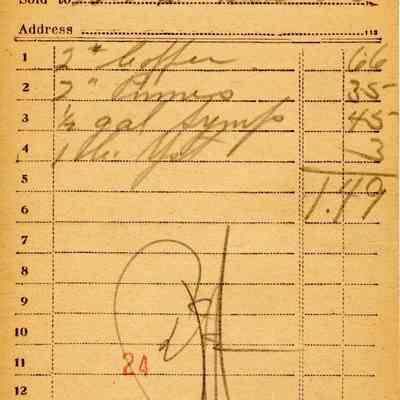 Sold to
Address 113
1 2 " Coffee 66
2 2 " Prunes 35
3 ½ gal Syrup 45
4 1 3
5 1.49
6
7
8
9
10
11 24
12